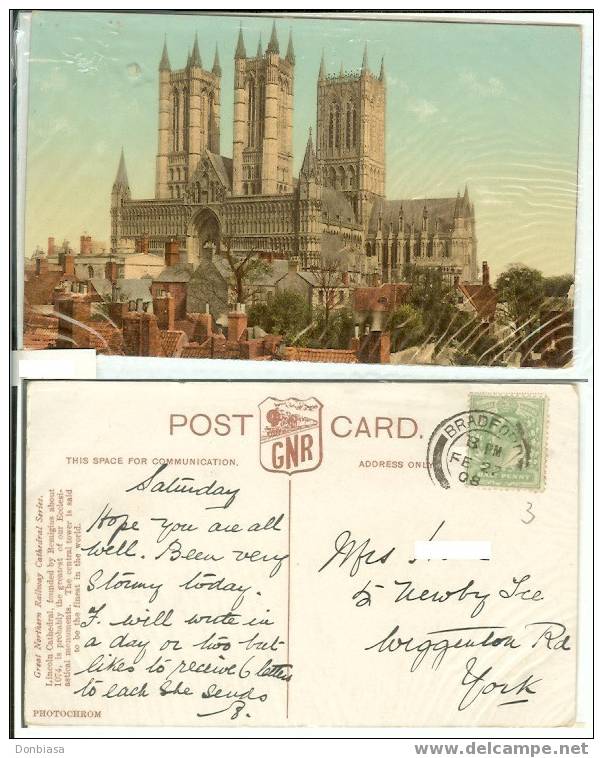 POST CARD.
GNR
THIS SPACE FOR COMMUNICATION.
ADDRESS ONLY
BRADFORD
8 PM
FE 22
08
PENNY
3
Great Northern Railway Cathedral Series.
Lincoln Cathedral, founded by Remigius about
1074, is probably the greatest of our Ecclesi-
astical monuments. The central tower is said
to be the finest in the world.
PHOTOCHROM
Saturday
Hope you are all
well. Been very
Stormy today.
F. will write in
a day or two but
likes to receive 6 letters
to each She sends
B.
Mrs
5 Newby Tce
Wiggenton Rd
York
Donbiasa
www.delcampe.net